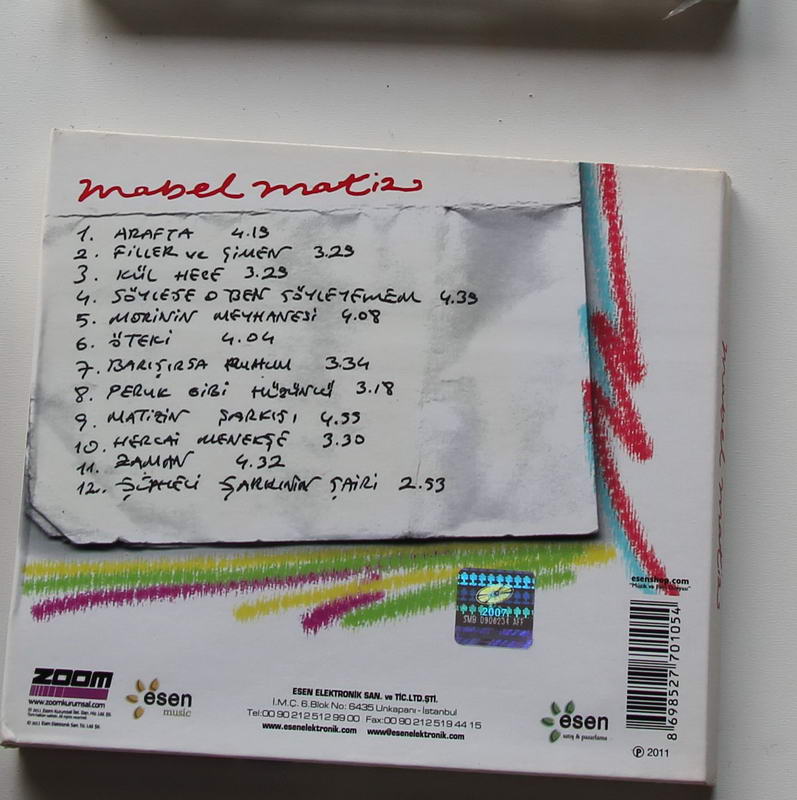 mabel matiz
1. ARAFTA 4.19
2. FİLLER ve ÇİMEN 3.29
3. KÜL HECE 3.29
4. SÖYLESE O BEN SÖYLEYEMEM 4.39
5. MORİNİN MEYHANESİ 4.08
6. ÖTEKİ 4.04
7. BARIŞIRSA RUHUM 3.34
8. PERUK GİBİ HÜZÜNLÜ 3.18
9. MATİZİN ŞARKISI 4.55
10. HERCAİ MENEKŞE 3.30
11. ZAMAN 4.32
12. ŞÜPHELİ ŞARKININ ŞAİRİ 2.53
mabel matiz
esenshop.com
8698527701054
2007
SMB 0900234 AFF
ZOOM
www.zoomkurumsal.com
esen
music
ESEN ELEKTRONİK SAN. ve TİC.LTD.ŞTİ.
İ.M.Ç. 6.Blok No: 6435 Unkapanı - İstanbul
Tel:00 90 212 512 99 00 Fax:00 90 212 519 44 15
www.esenelektronik.com www@esenelektronik.com
esen
satış & pazarlama
℗ 2011